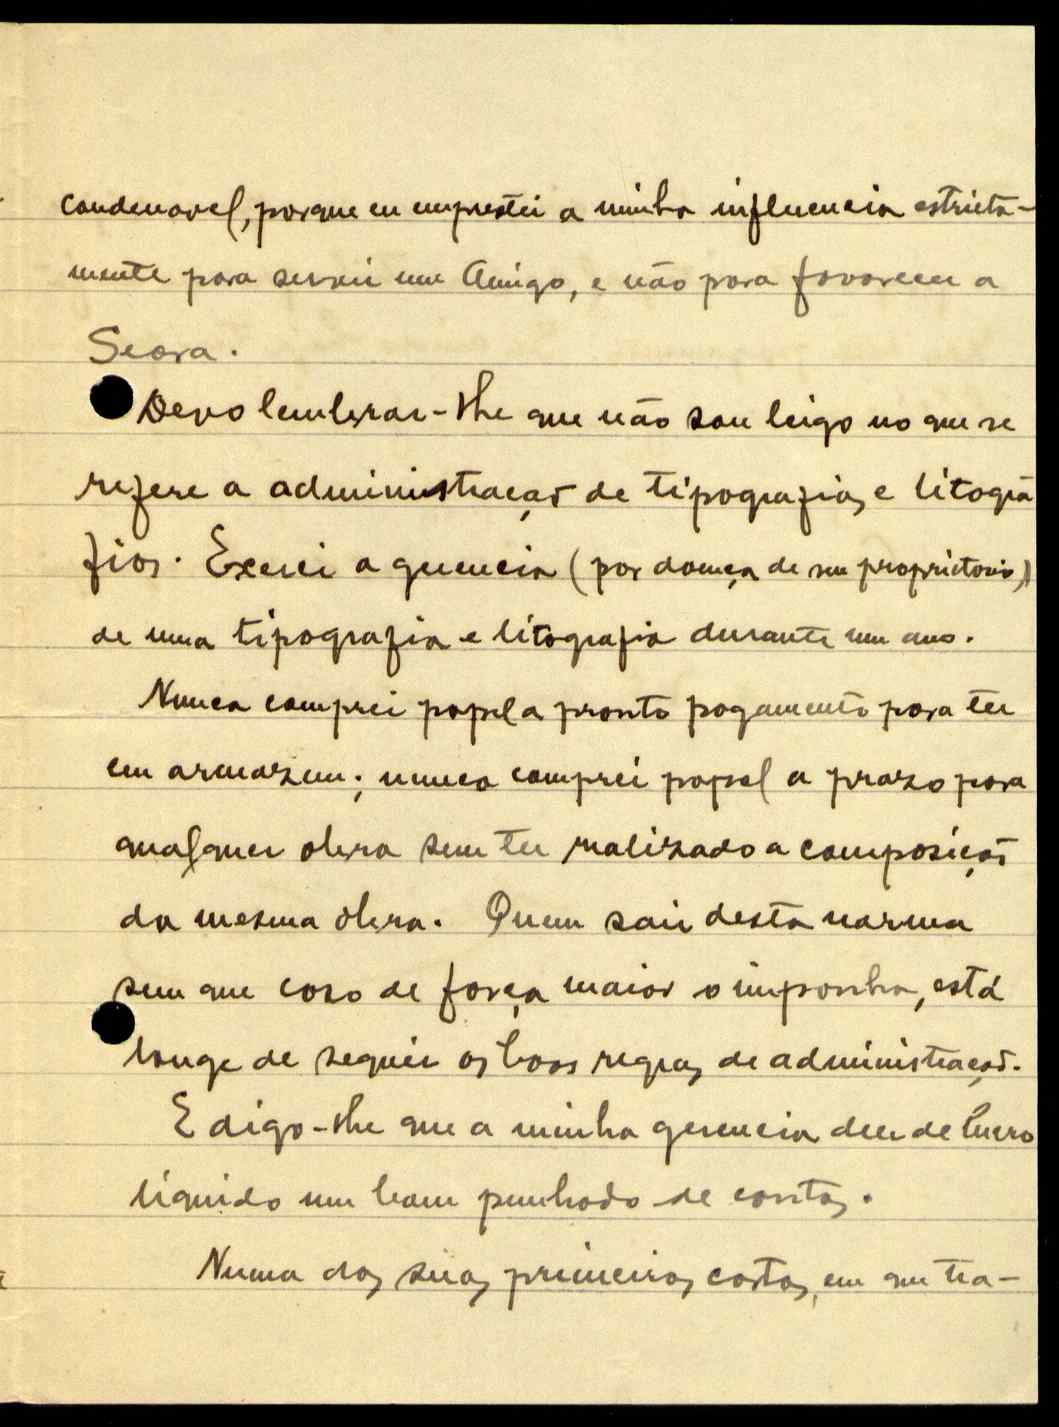 condenavel, porque eu emprestei a minha influencia estricta-
mente para servir um Amigo, e não para favorecer a
Seara.
Devo lembrar-lhe que não sou leigo no que se
refere a administração de tipografias e litogra
fias. Exerci a gerencia (por doença de seu proprietario)
de uma tipografia e litografia durante um ano.
Nunca comprei papel a pronto pagamento para ter
em armazem; nunca comprei papel a prazo para
qualquer obra sem ter realizado a composição
da mesma obra. Quem sair desta norma
sem que caso de força maior o imponha, está
longe de seguir as boas regras de administração.
E digo-lhe que a minha gerencia deu de lucro
líquido um bom punhado de contos.
Numa das suas primeiras cartas, em que tra-